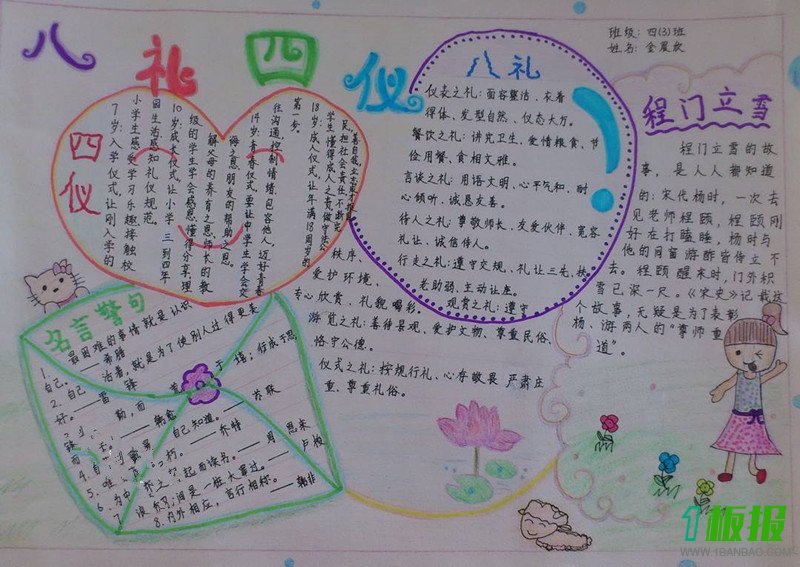 八礼四仪
班级：四(3)班
姓名：金晨欣
四仪
7岁入学仪式，让刚入学的
小学生感受学习乐趣接触校
园生活感知礼仪规范。
10岁成长仪式让小学三到四年
级的学生学会感恩懂得分享，理
解父母的养育之恩，师长的教
诲之恩朋友的帮助之恩。
14岁青春仪式，要让中学生学会交
往沟通，控制情绪，包容他人，迈好青春
第一步。
18岁成人仪式，让年满18周岁的
学生懂得成人之责做守法公
民，担社会责任，不断完
善自我，立志成才报国
八礼
仪表之礼：面容整洁、衣着
得体、发型自然、仪态大方。
餐饮之礼：讲究卫生、爱惜粮食、节
俭用餐、食相文雅。
言谈之礼：用语文明、心平气和、耐
心倾听，诚恳友善。
待人之礼：尊敬师长、友爱伙伴、宽容
礼让、诚信待人。
行走之礼：遵守交规、礼让三先、扶
老助弱、主动让座。
观赏之礼：遵守
秩序、
爱护环境、
专心欣赏、礼貌喝彩。
游览之礼：善待景观、爱护文物、尊重民俗、
恪守公德。
仪式之礼：按规行礼、心存敬畏 严肃庄
重、尊重礼俗。
程门立雪
程门立雪的故
事，是人人都知道
的：宋代杨时，一次去
见老师程颐，程颐刚
好在打瞌睡，杨时与
他的同窗游酢皆侍立不
去。程颐醒来时，门外积
雪已深一尺。《宋史》记载这
个故事，无疑是为了表彰
杨、游两人的“尊师重
道”。
名言警句
1. 最困难的事情就是认识
自己。——希腊
2. 治者，就是为了使别人过得更美
好。
自己知道。
起而读书。——周恩来
是一桩大罪过。——卢梭
8. 内外相应，言行相称。——韩非
1板报
WWW.1BANBAO.COM